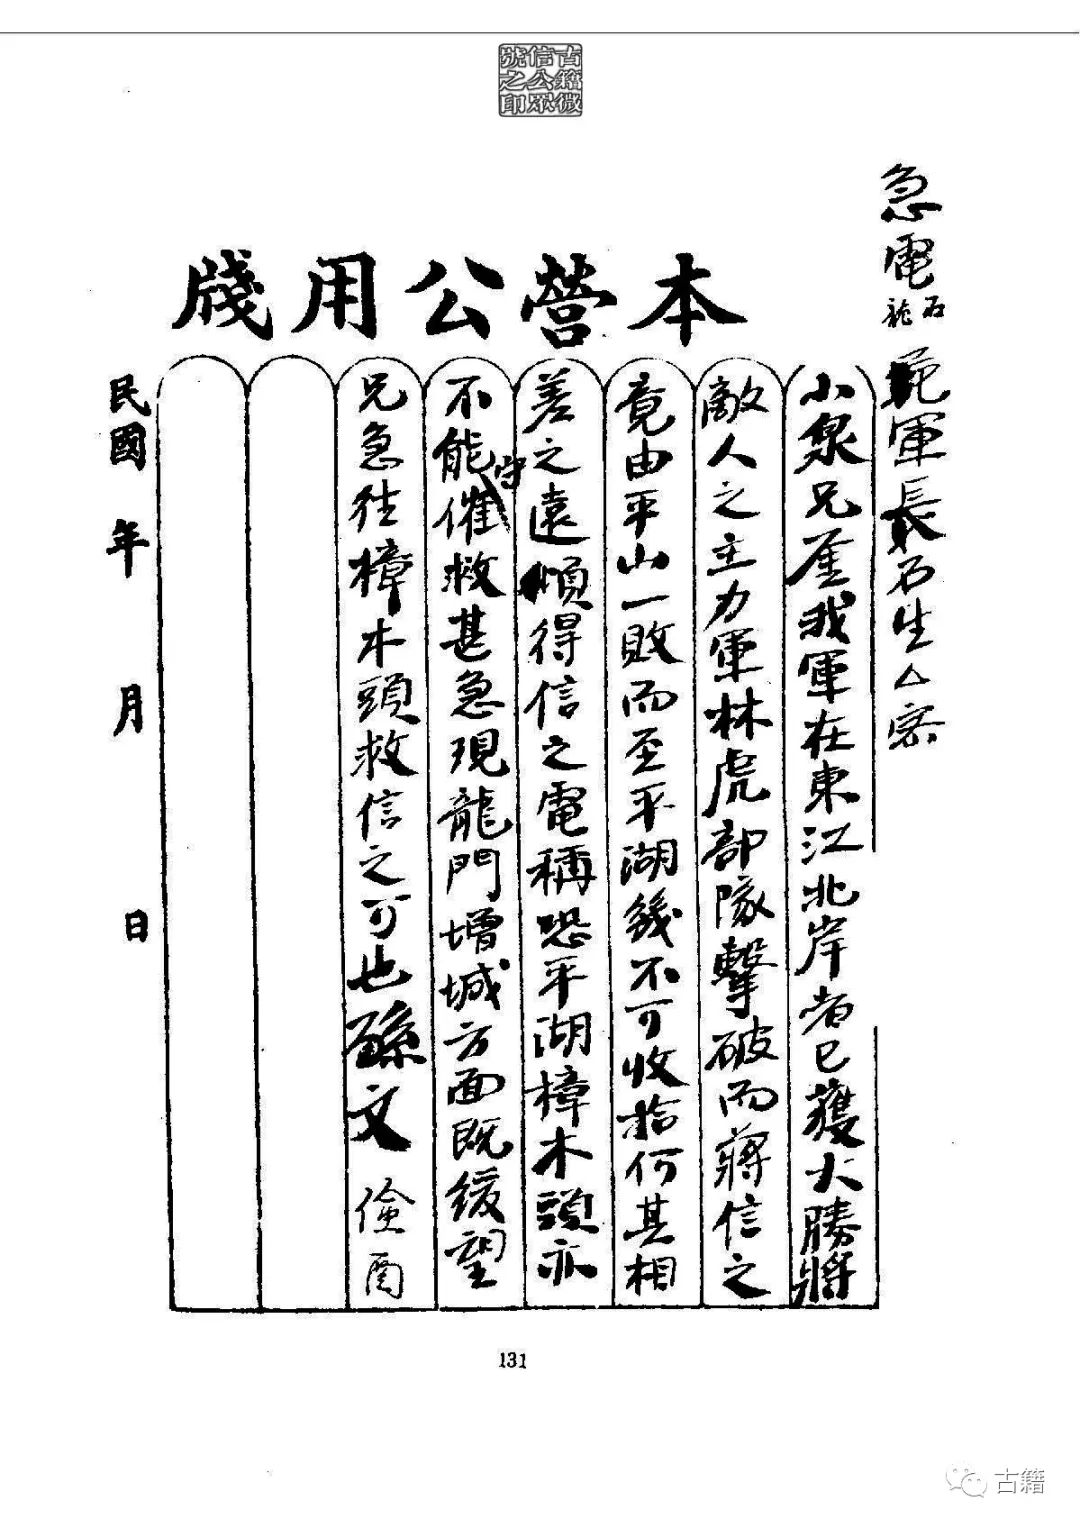 古籍微
信公眾
號之印
本營公用牋
急電石龍范軍長石生△密
小泉兄鑒我軍在東江北岸者已獲大勝將
敵人之主力軍林虎部隊擊破而蔣信之
竟由平山一敗而至平湖幾不可收拾何其相
差之遠頃得信之電稱恐平湖樟木頭亦
不能守催救甚急現龍門增城方面既緩望
兄急往樟木頭救信之可也孫文 儉酉
民國 年 月 日
131
古籍